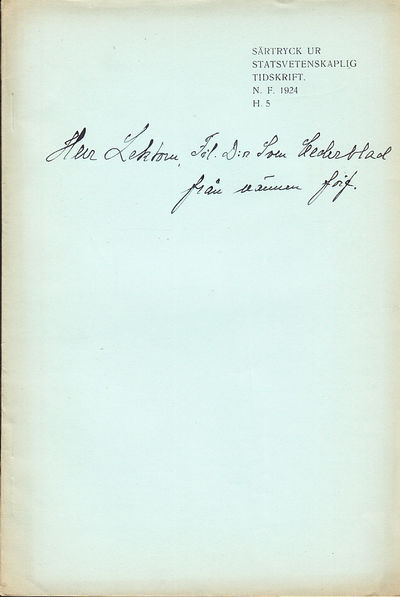 SÄRTRYCK UR
STATSVETENSKAPLIG
TIDSKRIFT.
N. F. 1924
H. 5
Herr Lektorn, Fil. D:r Sven Cederblad
från vännen förf.